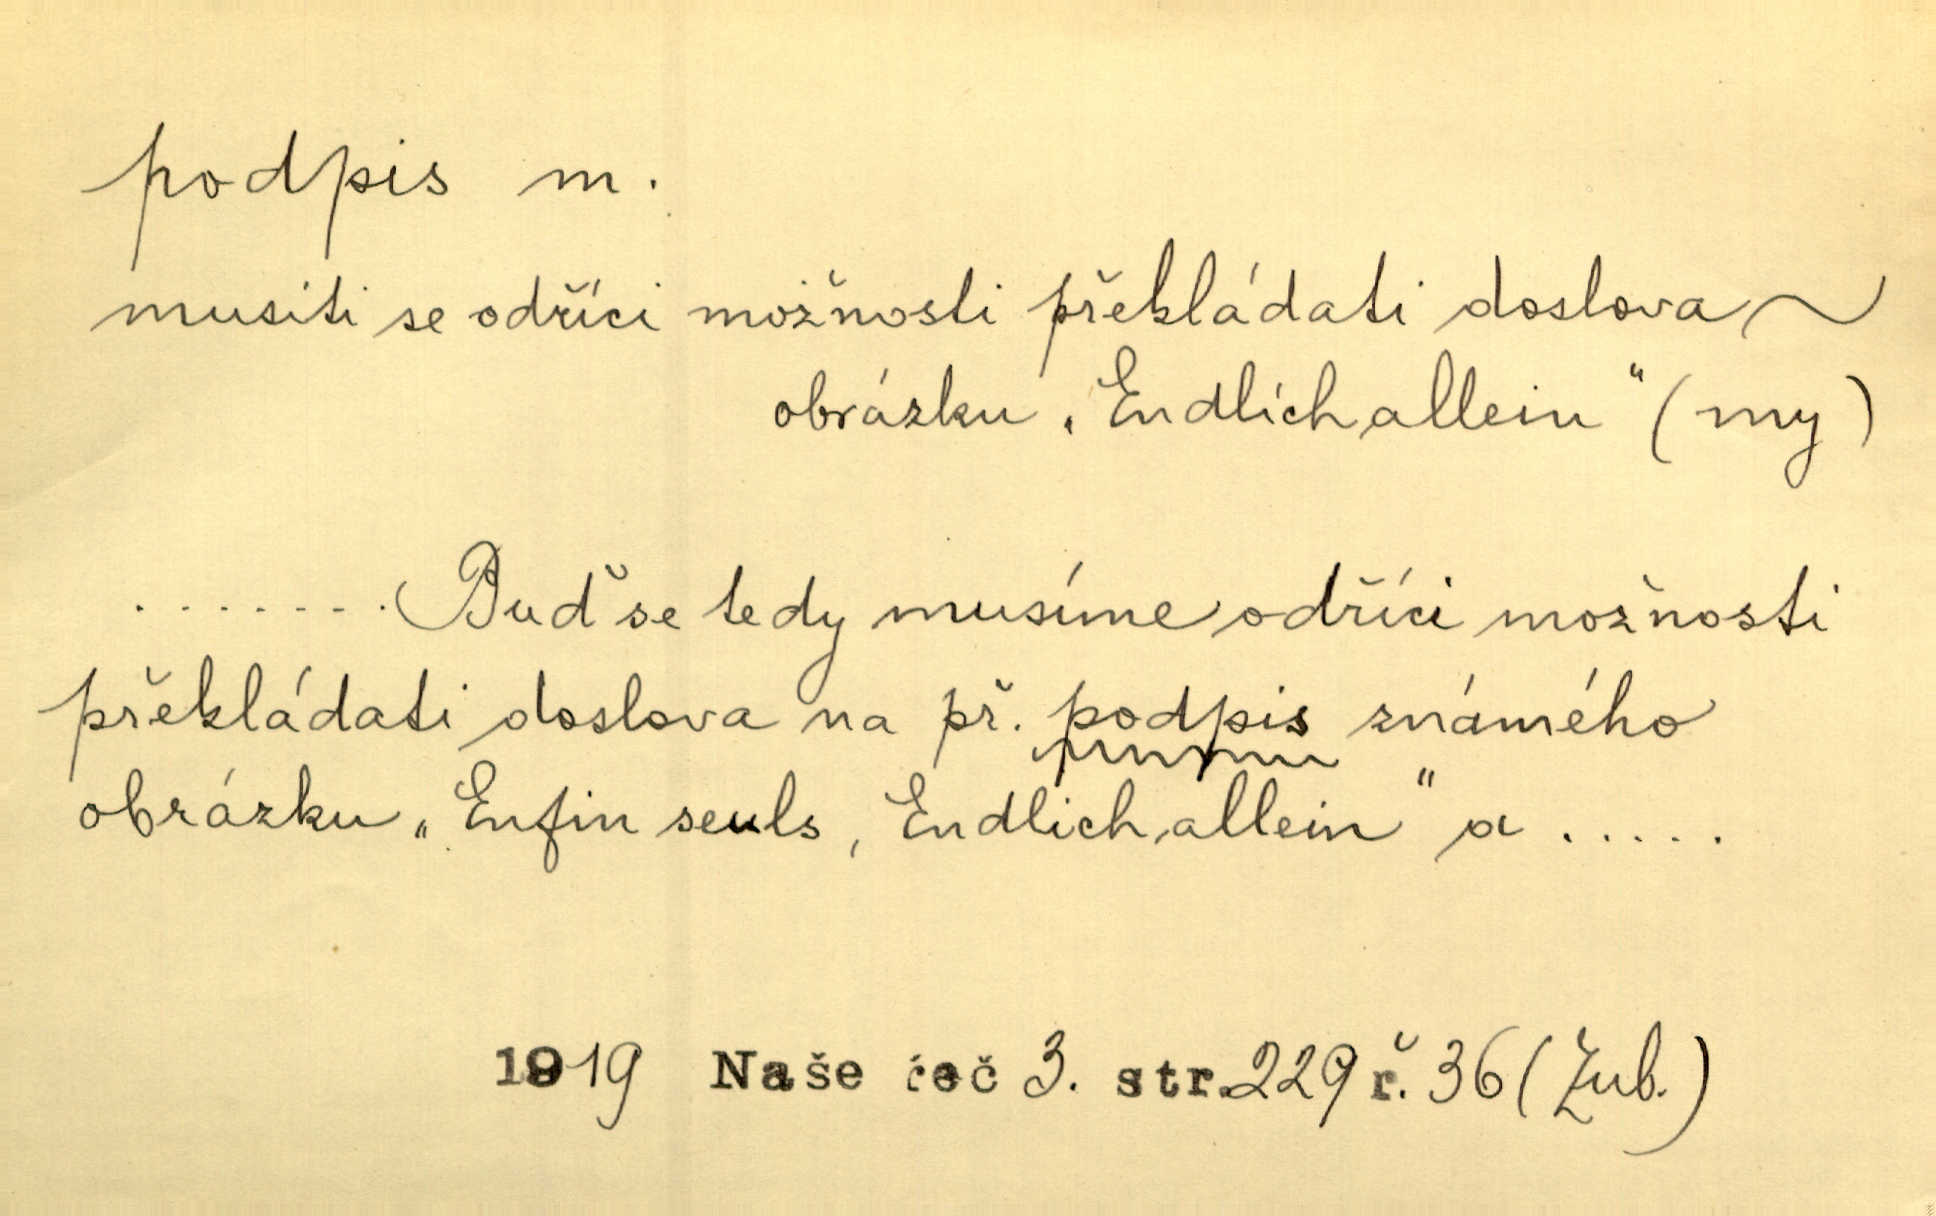 podpis m.
musiti se odříci možnosti překládati doslova ~
obrázku „Endlich allein“ (my)
........ Buď se tedy musíme odříci možnosti
překládati doslova na př. podpis známého
obrázku „Enfin seuls, Endlich allein“ a .....
1919 Naše řeč 3. str. 229 ř. 36 (Zub.)